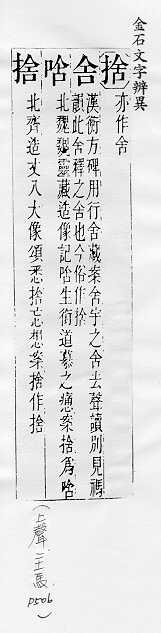 金石文字辨異
捨 亦作舍
舍 漢衡方碑用行舍藏案舍字之舍去聲讀別見禡
韻此舍釋之舍也今俗作捨
唅 北魏魏靈藏造像記唅生衒道慕之憑案捨為唅
捨 北齊造丈八大像頌悉捨忘想案捨作捨
(上聲二十一馬 P506)